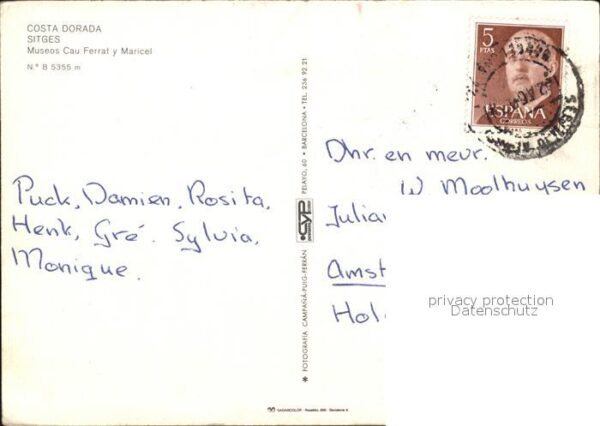 COSTA DORADA
SITGES
Museos Cau Ferrat y Maricel
N.º B 5355 m
Puck, Damien, Rosita,
Henk, Gré. Sylvia,
Monique.
✱ FOTOGRAFÍA CAMPAÑÁ-PUIG-FERRÁN
CYP
PELAYO, 60 • BARCELONA • TEL. 236 92 21
5
PTAS
ESPAÑA
CORREOS
Dhr. en meur.
W Moolhuysen
Julia
Amst
Hol
privacy protection
Datenschutz